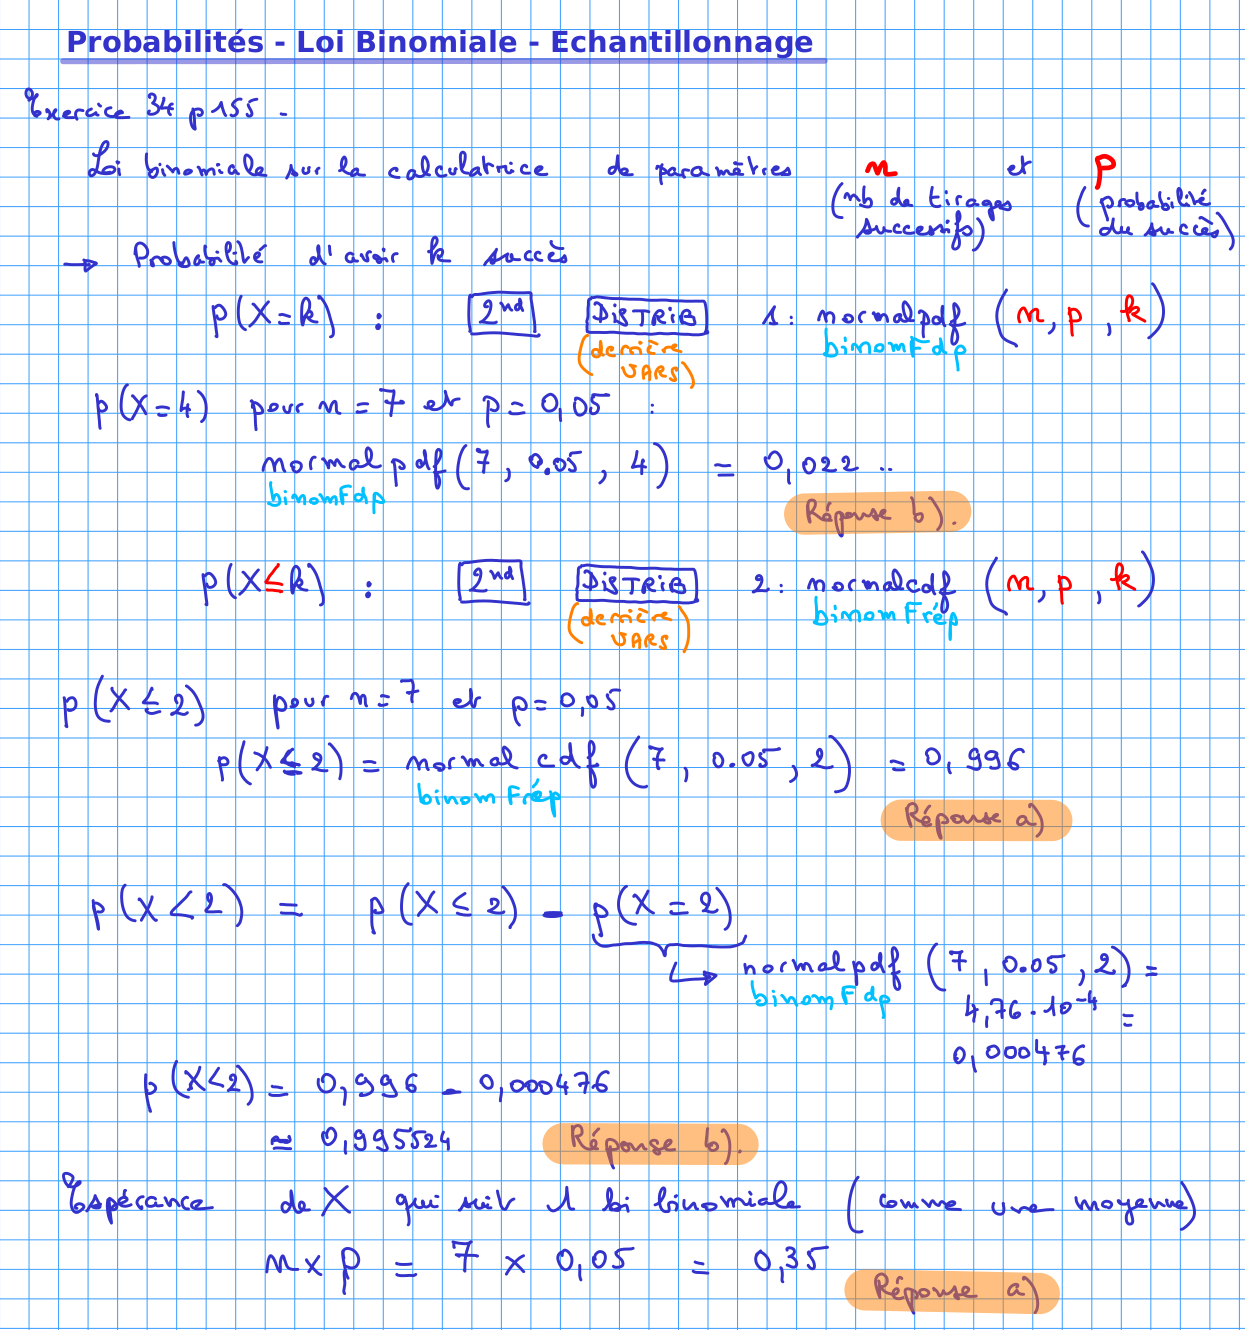 Probabilités - Loi Binomiale - Echantillonnage
Exercice 34 p 155 -
Loi binomiale sur la calculatrice de paramètres n et p
(nb de tirages successifs) (probabilité du succès)
→ Probabilité d'avoir k succès
p(X=k) : 2nd DISTRIB 1: normalpdf (n, p, k)
(derrière VARS) binomFdp
p(X=4) pour n=7 et p=0,05 :
normalpdf(7, 0.05, 4) = 0,022 ..
binomFdp
Réponse b).
p(X≤k) : 2nd DISTRIB 2: normalcdf (n, p, k)
(derrière VARS) binomFrép
p(X≤2) pour n=7 et p=0,05
p(X≤2) = normal cdf (7, 0.05, 2) = 0,996
binomFrép
Réponse a)
p(X<2) = p(X≤2) - p(X=2)
↳ normalpdf (7, 0.05, 2) =
binomFdp 4,76.10⁻⁴ =
0,000476
p(X<2) = 0,996 - 0,000476
≃ 0,995524 Réponse b).
Espérance de X qui suit 1 loi binomiale (comme une moyenne)
n x p = 7 x 0,05 = 0,35
Réponse a)